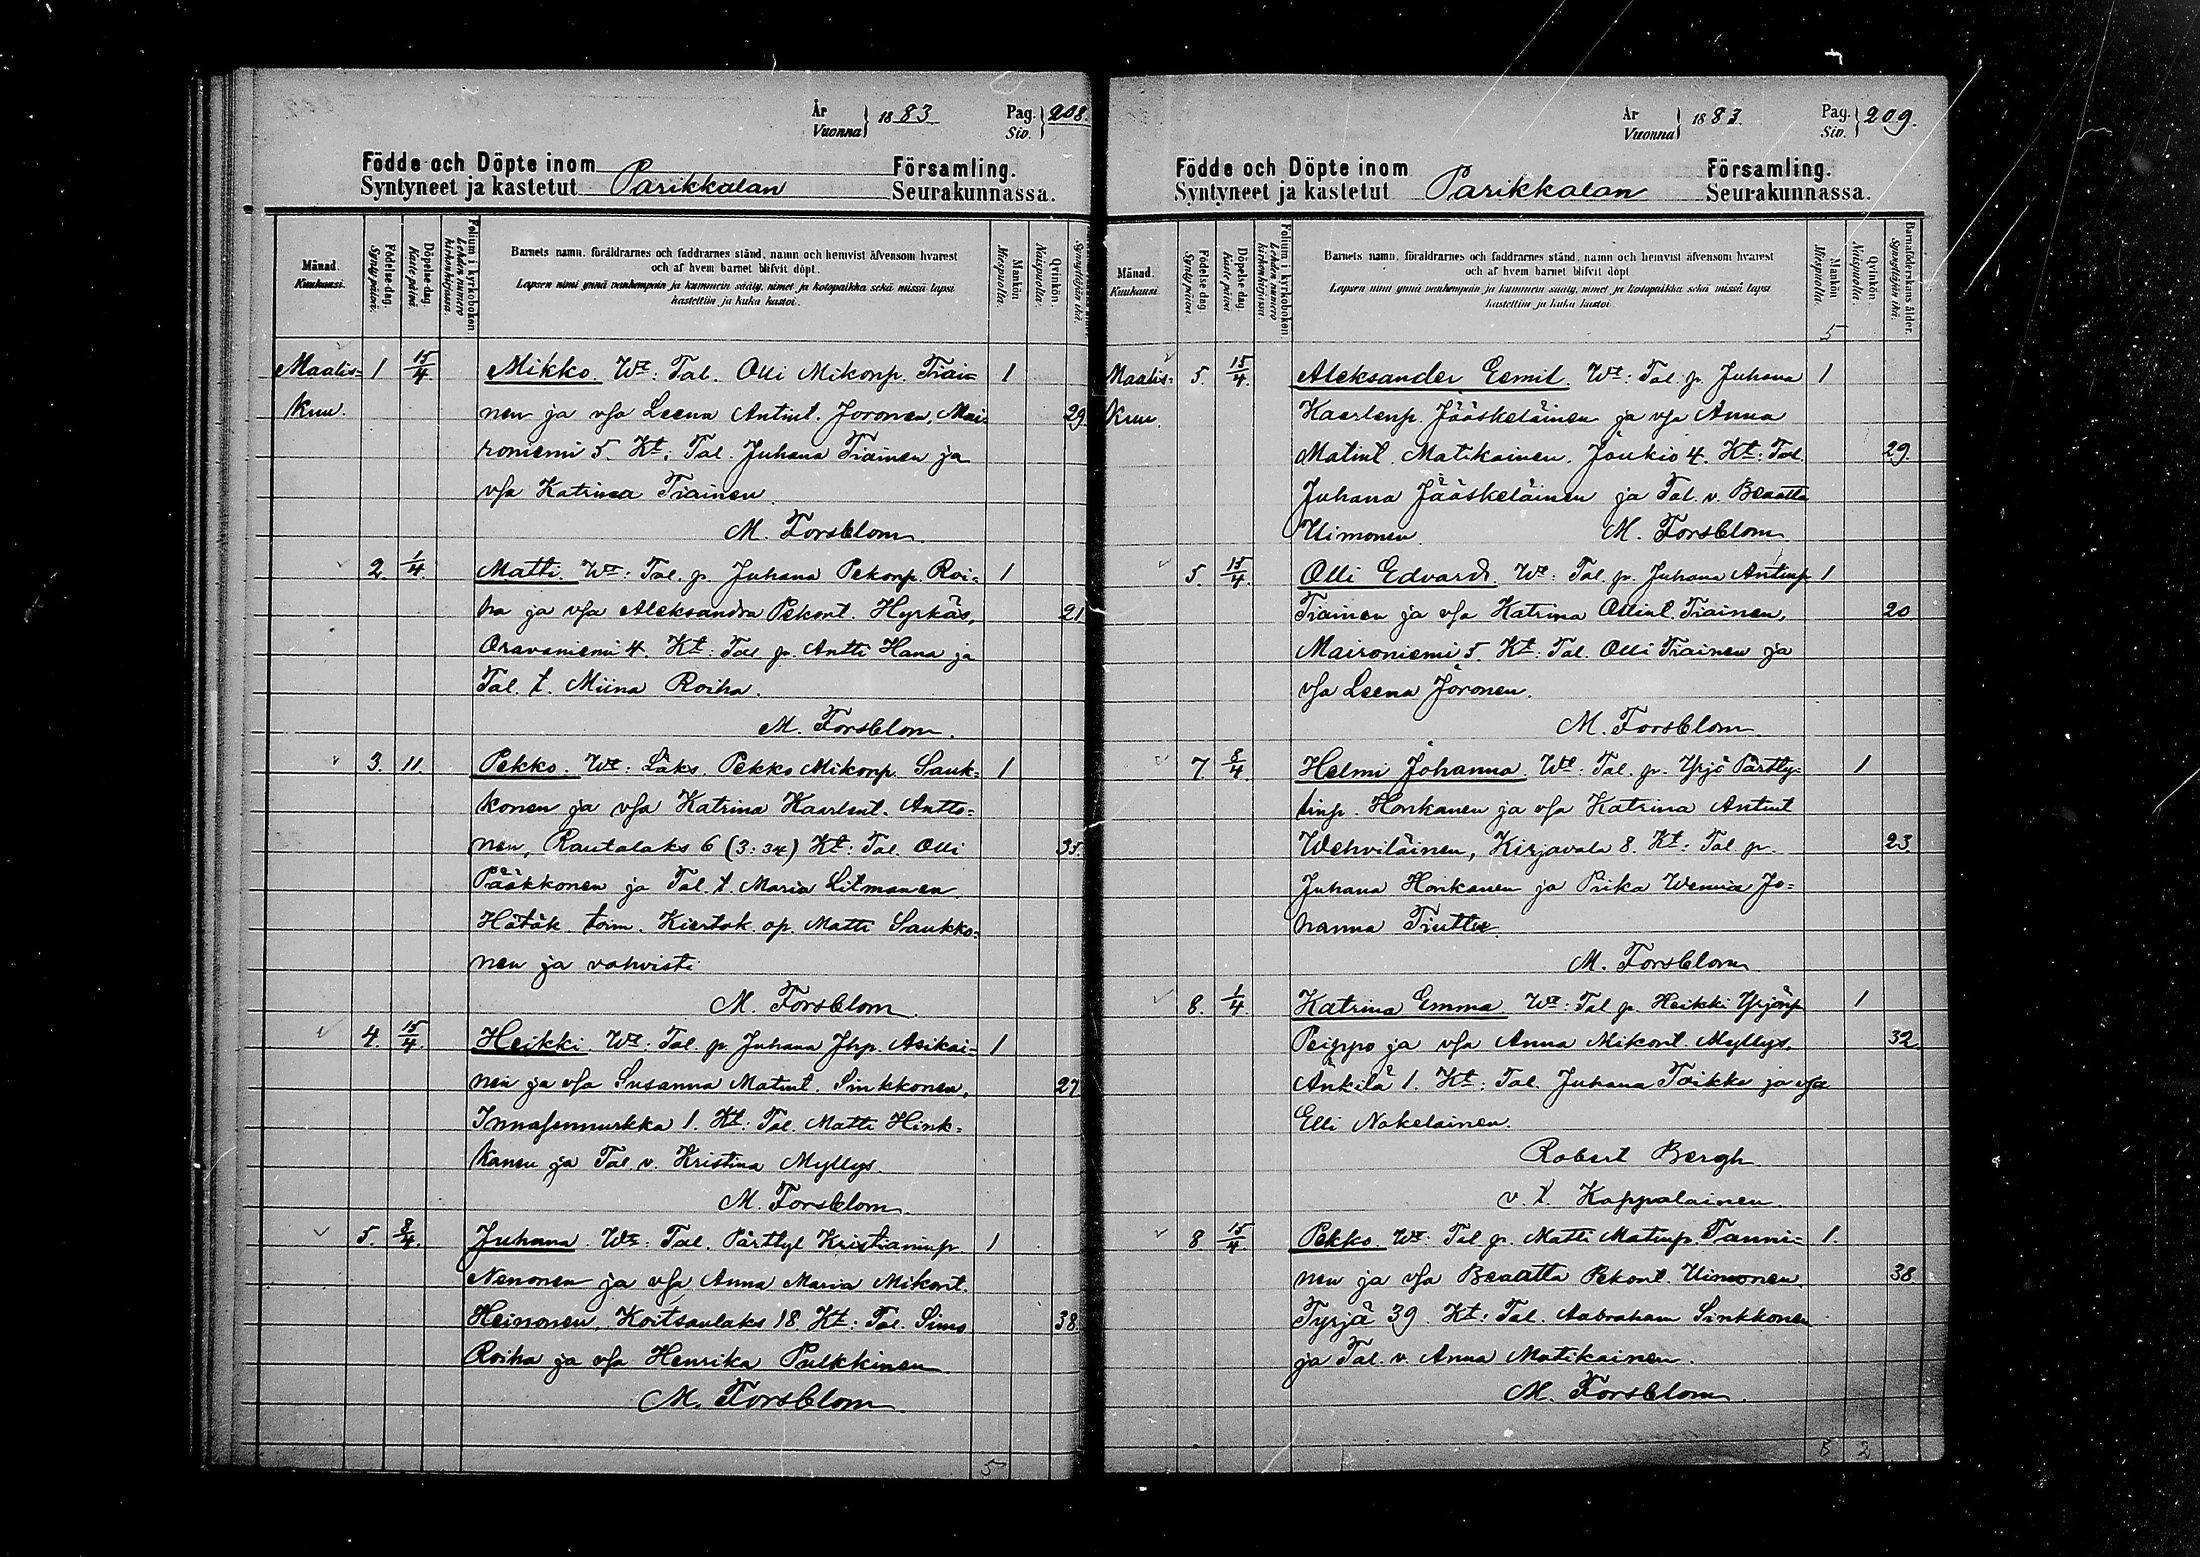 År
Vuonna } 1883. Pag. Siv. } 208.
Födde och Döpte inom Församling.
Syntyneet ja kastetut Parikkalan Seurakunnassa.
Månad. Kuukausi.
Födelse-dag. Syntypäivä.
Döpelse-dag. Kaste-päivä.
Folium i kyrkoboken. Lehden numero kirkonkirjassa.
Barnets namn, föräldrarnes och faddrarnes stånd, namn och hemvist äfvensom hvarest
och af hvem barnet blifvit döpt.
Lapsen nimi ynnä vanhempain ja kummein sääty, nimet ja kotopaikka sekä missä lapsi
kastettiin ja kuka kastoi.
Mankön. Miespuolta.
Qvinkön. Naispuolta.
Maalis- 1 15/4 Mikko. Wt: Tal. Olli Mikonp. Tiai= 1
kuu. nen ja vsa Leena Antint. Joronen, Mai= 29
roniemi 5. Kt: Tal. Juhana Tiainen ja
vsa Katrina Tiainen
M. Forsblom.
2 1/4. Matti. Wt: Tal. p. Juhana Pekonp. Roi= 1
ha ja vsa Aleksandra Pekont. Hyrkäs, 21
Oravaniemi 4. Kt: Tal p. Antti Hana ja
Tal. t. Miina Roiha.
M. Forsblom.
3. 11. Pekko. Wt: Läks. Pekko Mikonp. Sauk= 1
konen ja vsa Katrina Kaarlent. Antto=
nen, Rautalaks 6 (3:34) Kt: Tal. Olli 35.
Pääkkonen ja Tal. t. Maria Litmanen
Hätäk. toim. Kiertok. op. Matti Saukko=
nen ja vahvisti
M. Forsblom.
4. 15/4. Heikki. Wt: Tal. p. Juhana Jhp. Asikai= 1
nen ja vsa Susanna Matint. Sinkkonen, 27
Innasennurkka 1. Kt: Tal. Matti Hink=
kanen ja Tal. v. Kristina Myllys.
M. Forsblom.
5. 8/4. Juhana. Wt: Tal. Pärttyl Kristianinp. 1
Nenonen ja vsa Anna Maria Mikont.
Heinonen, Koitsanlaks 18. Kt: Tal. Simo 38.
Roiha ja vsa Henrika Pulkkinen
M. Forsblom.
5
År
Vuonna } 1883. Pag. Siv. } 209.
Födde och Döpte inom Församling.
Syntyneet ja kastetut Parikkalan Seurakunnassa.
Månad. Kuukausi.
Födelse-dag. Syntypäivä.
Döpelse-dag. Kaste-päivä.
Folium i kyrkoboken. Lehden numero kirkonkirjassa.
Barnets namn, föräldrarnes och faddrarnes stånd, namn och hemvist äfvensom hvarest
och af hvem barnet blifvit döpt.
Lapsen nimi ynnä vanhempain ja kummein sääty, nimet ja kotopaikka sekä missä lapsi
kastettiin ja kuka kastoi.
Mankön. Miespuolta.
Qvinkön. Naispuolta.
Barnaföderskans ålder. Synnyttäjän ikä.
5
Maalis- 5. 15/4. Aleksander Eemil. Wt: Tal. p. Juhana 1
kuu. Kaarlenp. Jääskeläinen ja vsa Anna
Matint. Matikainen. Joukio 4. Kt: Tal. 29.
Juhana Jääskeläinen ja Tal. v. Beaatta
Uimonen. M. Forsblom
5. 15/4. Olli Edvard. Wt: Tal. p. Juhana Antinp 1
Tiainen ja vsa Katrina Ollint. Tiainen, 20
Maironiemi 5. Kt: Tal. Olli Tiainen ja
vsa Leena Joronen.
M. Forsblom
7 8/4. Helmi Johanna. Wt: Tal. p. Yrjö Pärtty= 1
linp. Honkanen ja vsa Katrina Antint
Wehviläinen, Kirjavala 8. Kt: Tal. p. 23.
Juhana Honkanen ja Piika Wenna Jo=
hanna Tiittu
M. Forsblom
8. 1/4. Katrina Emma. Wt: Tal p. Heikki Yrjönp 1
Peippo ja vsa Anna Mikont. Myllys, 32.
Änkilä 1. Kt: Tal. Juhana Toikka ja vsa
Elli Nokelainen.
Robert Bergh.
v. t. Kappalainen.
8 15/4. Pekko. Wt: Tal p. Matti Matinp. Tanni= 1.
nen ja vsa Beaatta Pekont. Uimonen, 38
Tyrjä 39. Kt: Tal. Aabraham Sinkkonen
ja Tal. v. Anna Matikainen.
M. Forsblom.
5 2